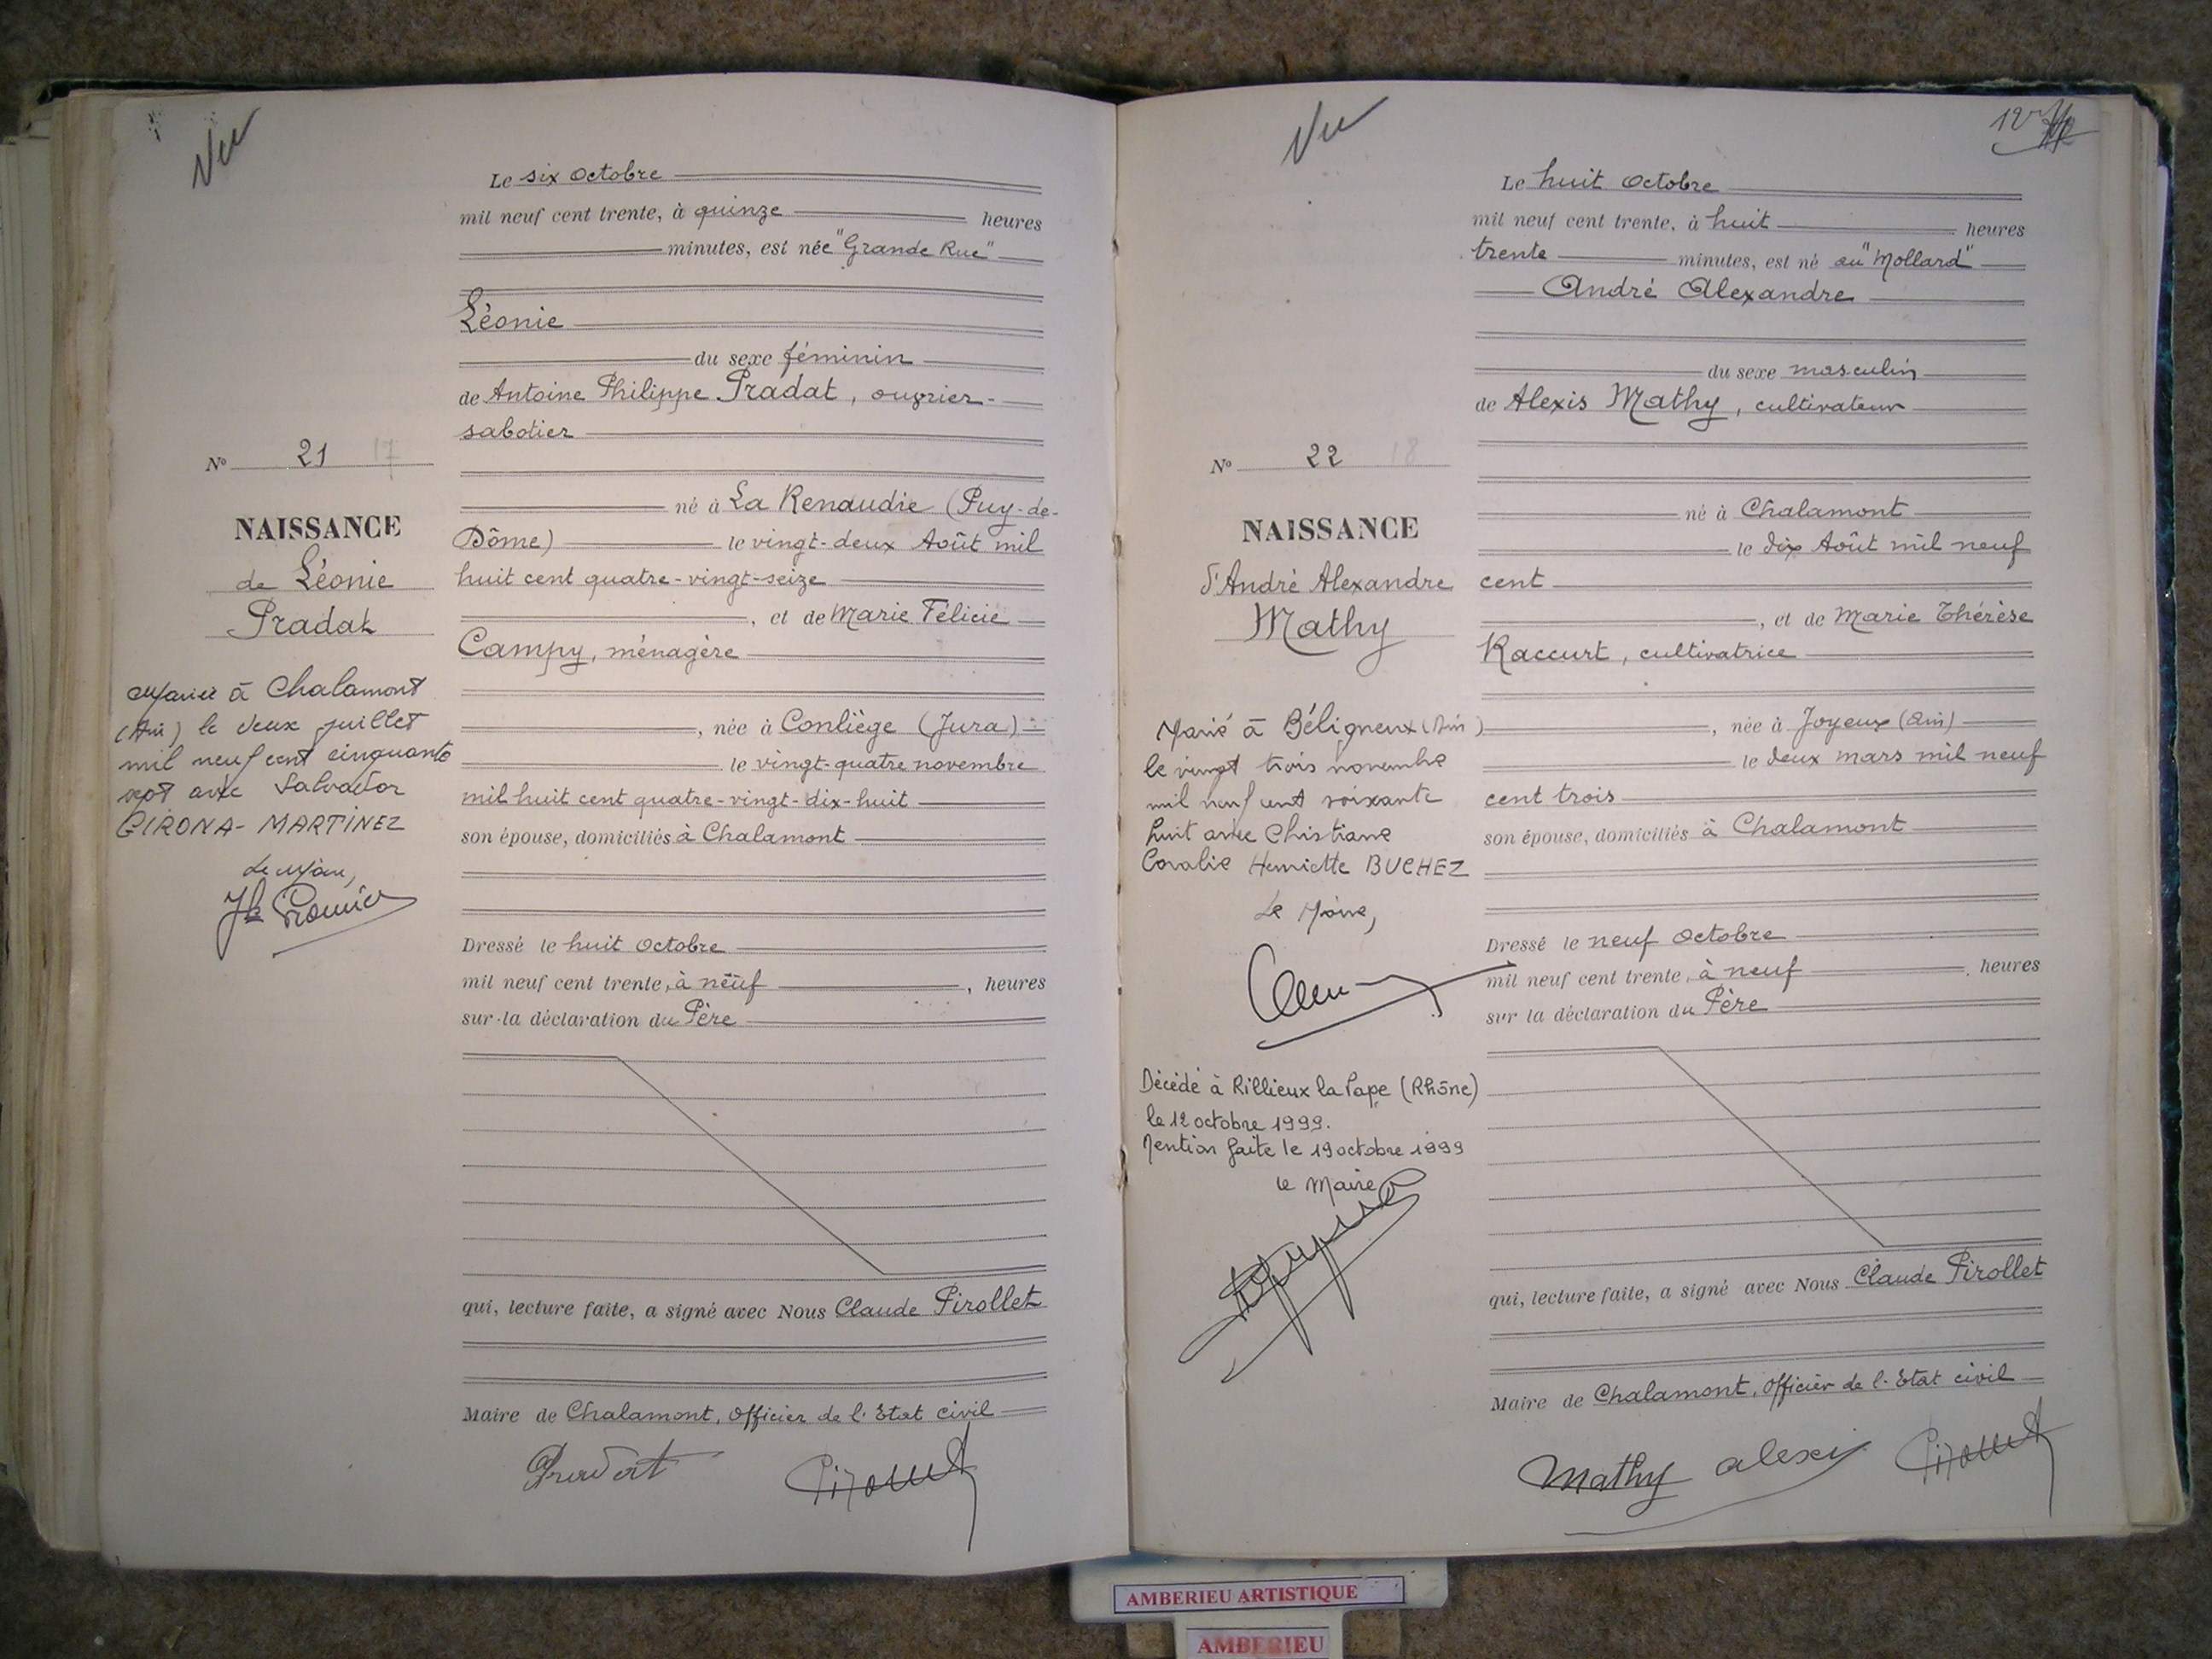 Vu
Le six Octobre
mil neuf cent trente, à quinze heures
minutes, est née "Grande Rue"
Léonie
du sexe féminin
de Antoine Philippe Pradat, ouvrier-
sabotier
né à La Renaudie (Puy-de-
Dôme) le vingt-deux Août mil
huit cent quatre-vingt-seize
, et de Marie Félicie
Campy, ménagère
, née à Conliège (Jura)
le vingt-quatre novembre
mil huit cent quatre-vingt-dix-huit
son épouse, domiciliés à Chalamont
Dressé le huit Octobre
mil neuf cent trente, à neuf , heures
sur la déclaration du Père
qui, lecture faite, a signé avec Nous Claude Pirollet
Maire de Chalamont, Officier de l'Etat civil
Pirollet
No 21 17
NAISSANCE
de Léonie
Pradat
Mariée à Chalamont
(Ain) le deux juillet
mil neuf cent cinquante
sept avec Salvador
GIRONA-MARTINEZ
Le Maire,
Vu
Le huit Octobre
mil neuf cent trente, à huit heures
trente minutes, est né au "Mollard"
André Alexandre
du sexe masculin
de Alexis Mathy, cultivateur
né à Chalamont
le dix Août mil neuf
cent
, et de Marie Thérèse
Raccurt, cultivatrice
, née à Joyeux (Ain)
le deux mars mil neuf
cent trois
son épouse, domiciliés à Chalamont
Dressé le neuf Octobre
mil neuf cent trente, à neuf heures
sur la déclaration du Père
qui, lecture faite, a signé avec Nous Claude Pirollet
Maire de Chalamont, Officier de l'Etat civil
Mathy alexis Pirollet
No 22 18
NAISSANCE
d'André Alexandre
Mathy
Marié à Béligneux (Ain)
le vingt trois novembre
mil neuf cent soixante
huit avec Christiane
Coralie Henriette BUCHEZ
Le Maire,
Décédé à Rillieux la Pape (Rhône)
le 12 octobre 1999.
Mention faite le 19 octobre 1999
le Maire
AMBERIEU ARTISTIQUE
AMBERIEU